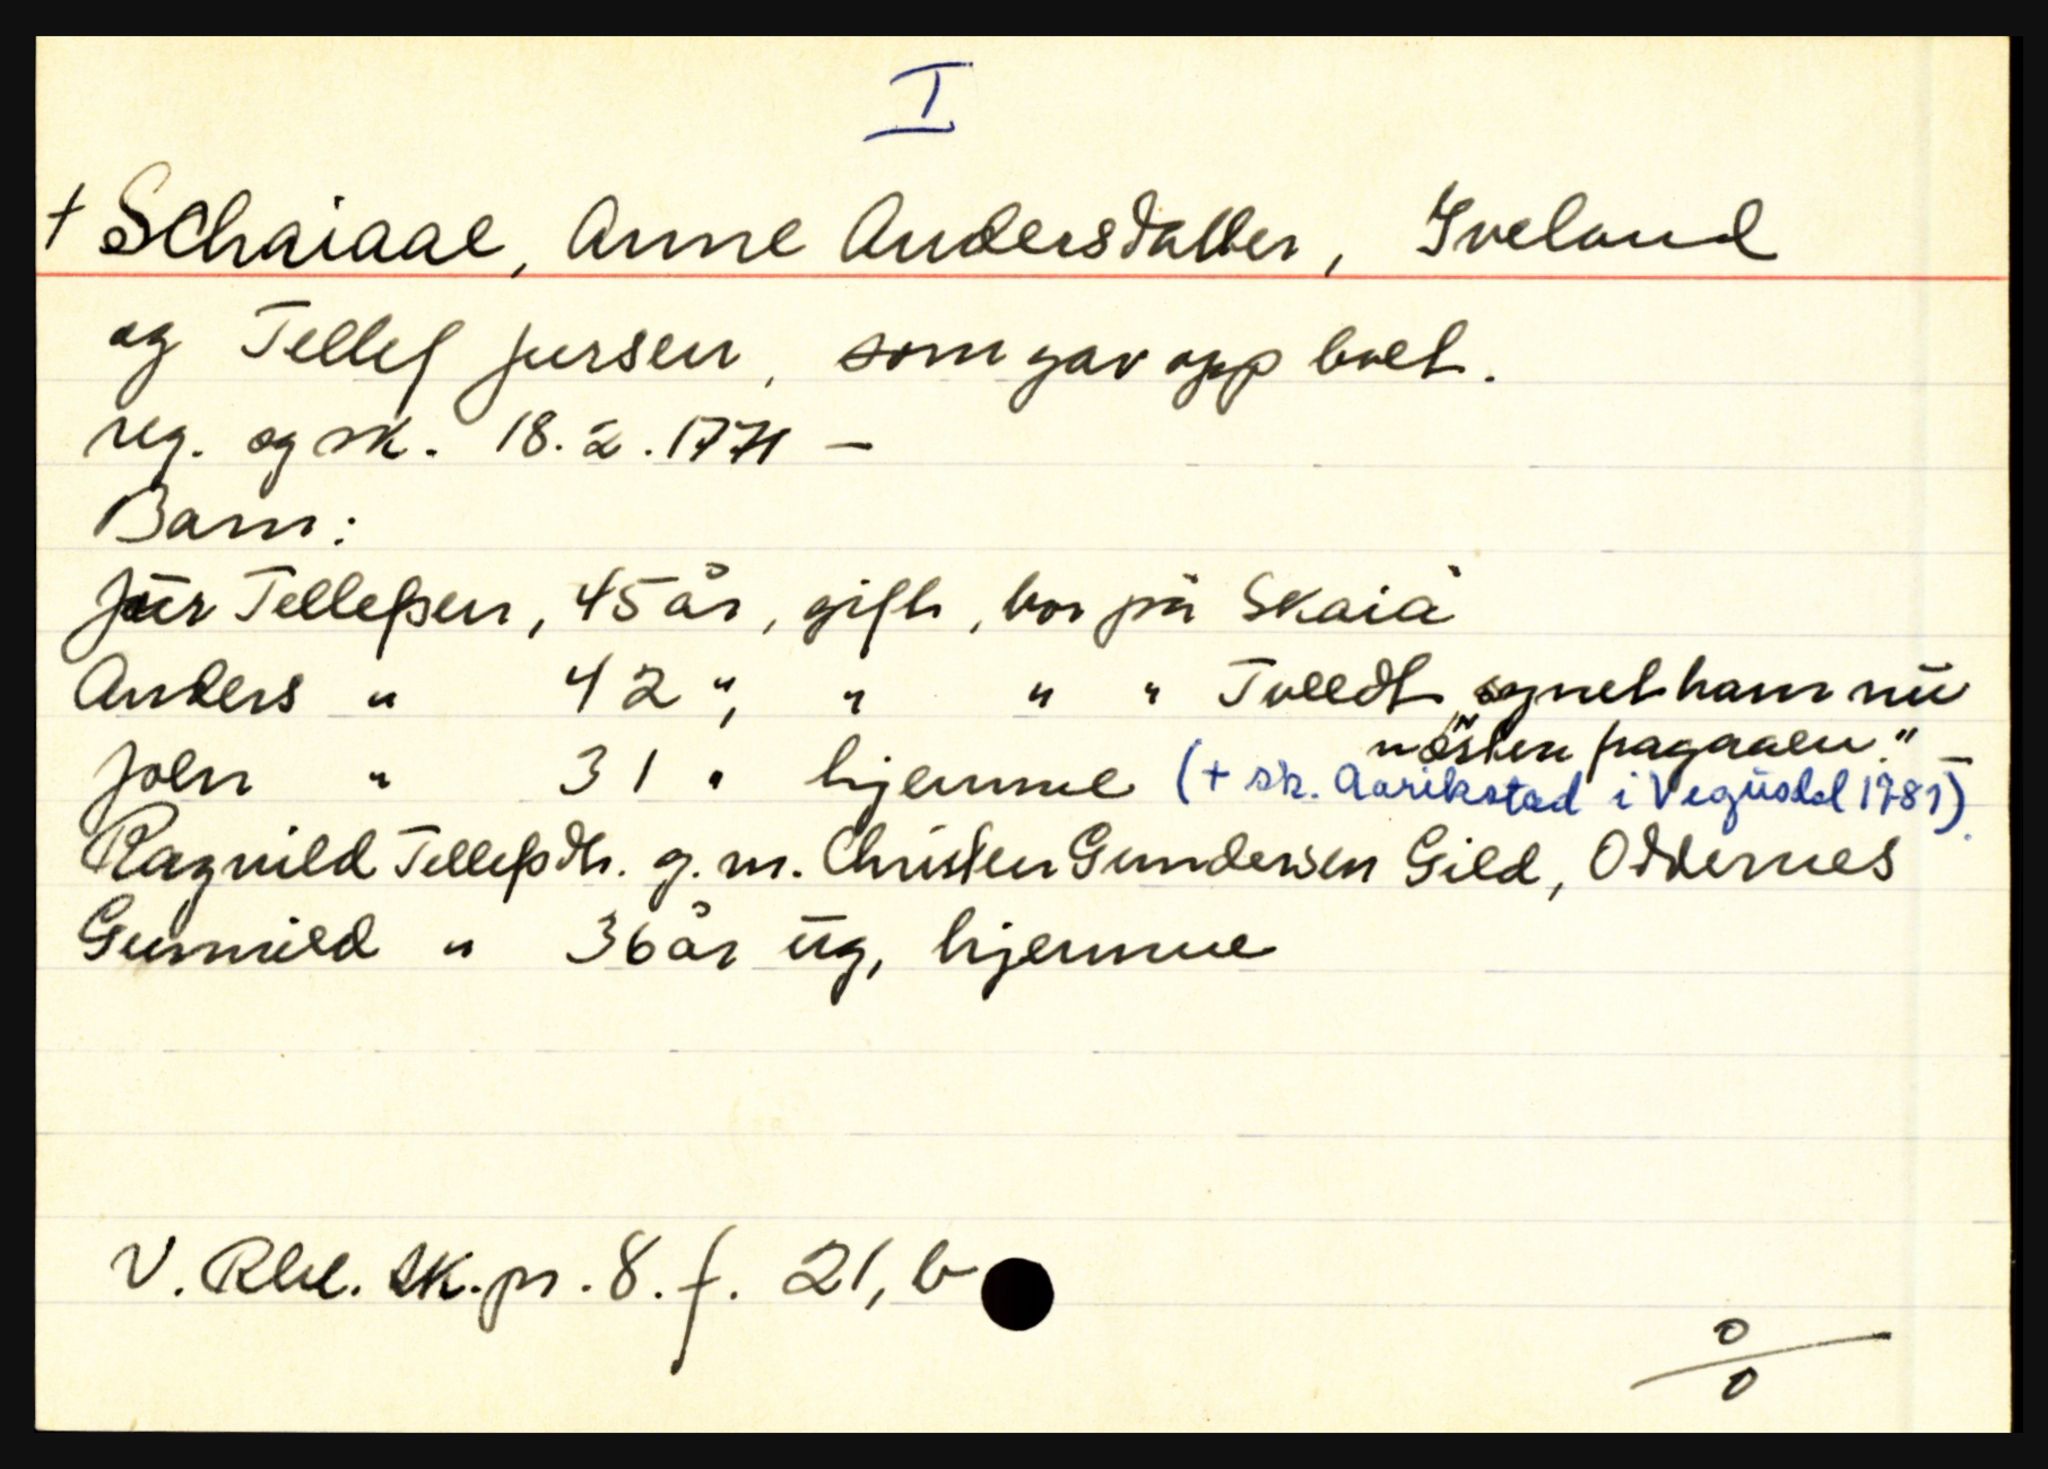 I
+ Schaiaae, Anne Andersdatter, Iveland
og Tellef Jursen, som gav opp boet.
reg. og sk. 18.2.1771 –
Barn:
Jur Tellefsen, 45 år, gift, bor på Skaiå
Anders " 42 ", " " " Tveedt, synet ham nu
"næsten fragaaen". –
John " 31 " hjemme (+ sk. Aarikstad i Vegusdal 1781).
Ragnild Tellefsdtr. g.m. Christen Gundersen Gild, Oddernes
Gunnild " 36 år ug, hjemme
V. Rbl. sk.pr. 8. f. 21, b
0/0